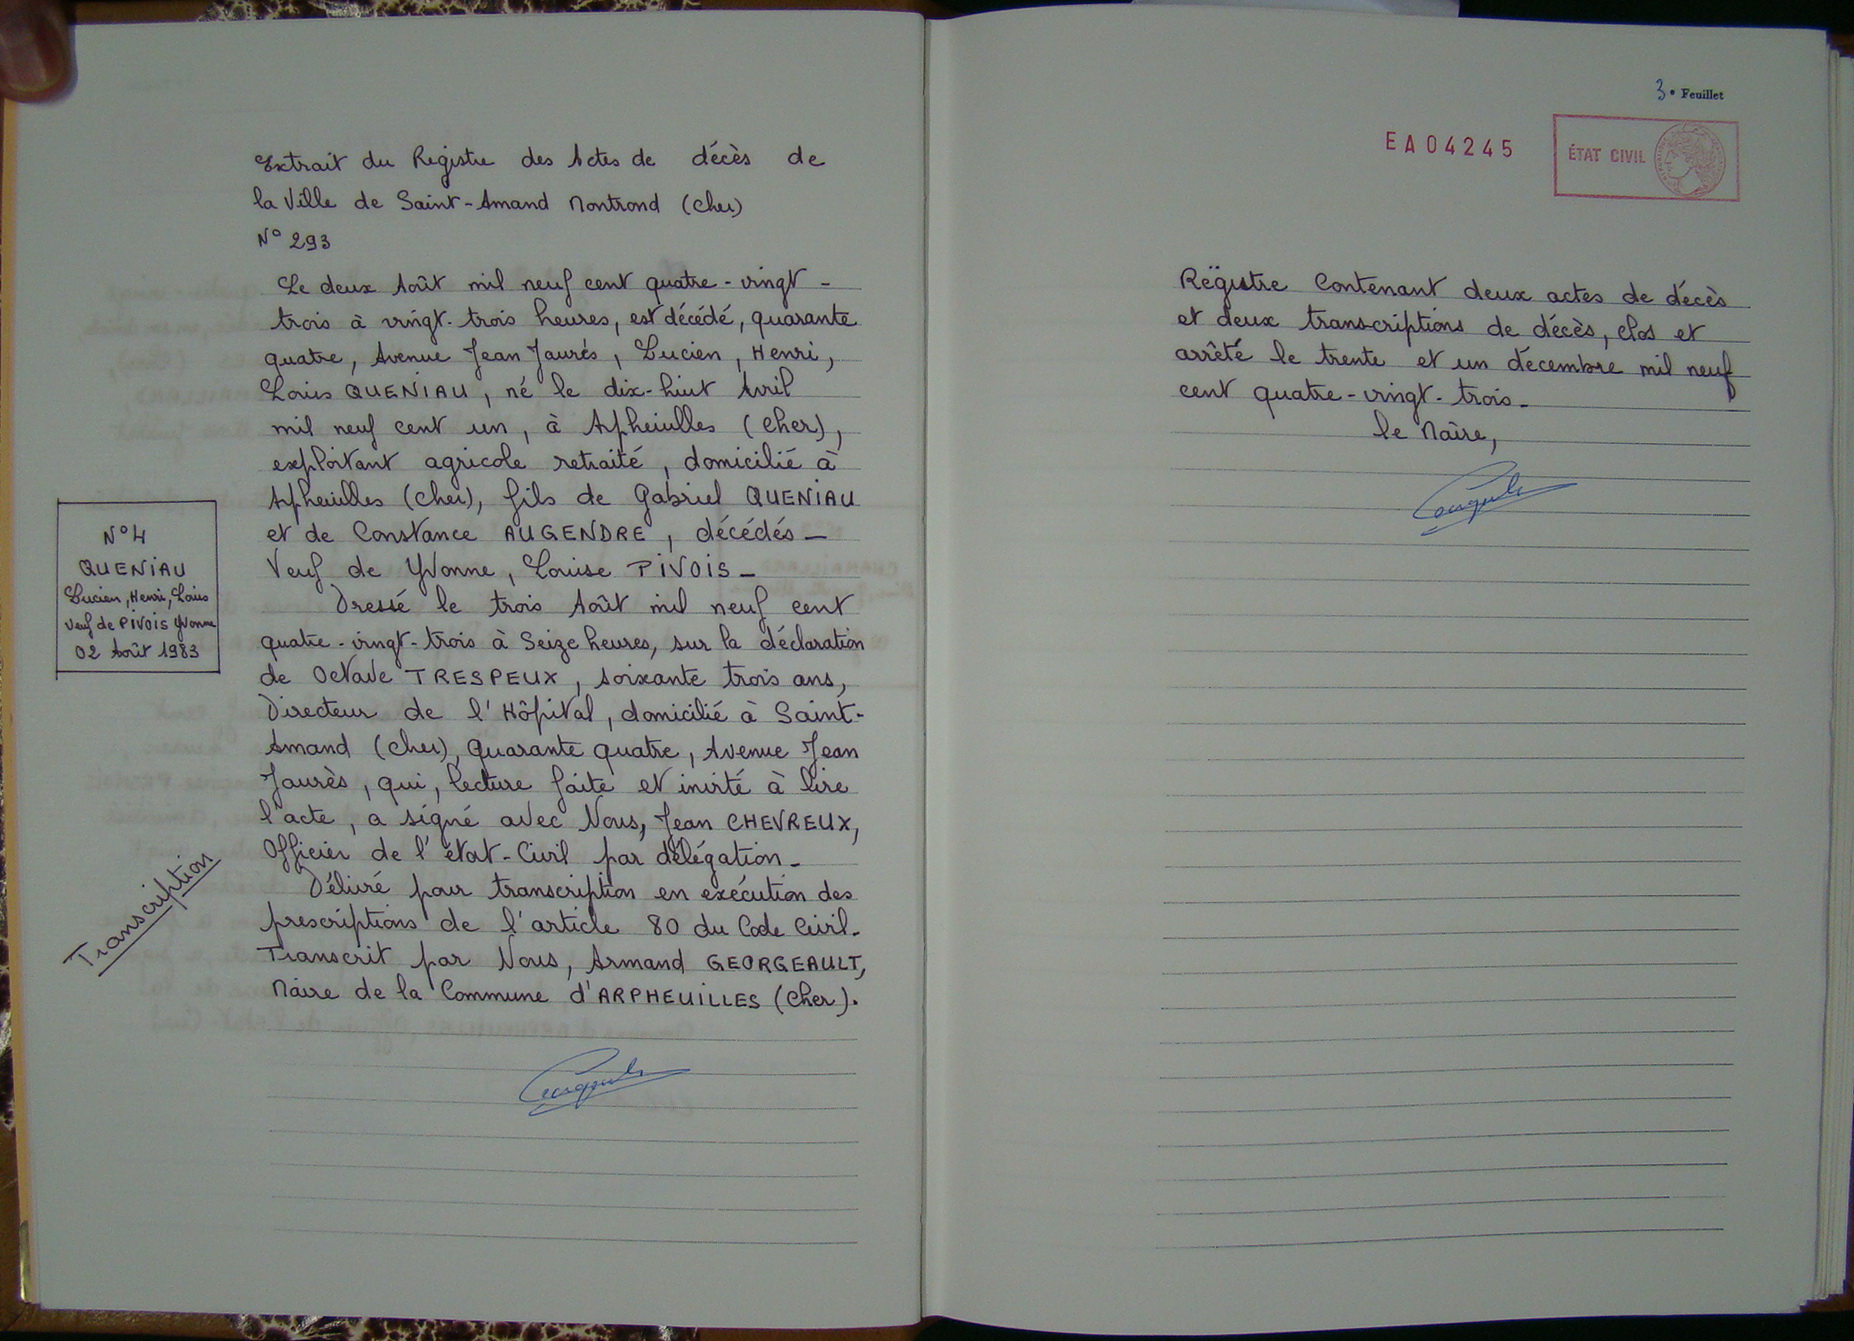 Extrait du Registre des Actes de décès de
la Ville de Saint-Amand Montrond (Cher)
N° 293
Le deux Août mil neuf cent quatre-vingt-
trois à vingt-trois heures, est décédé, quarante
quatre, Avenue Jean Jaurès, Lucien, Henri,
Louis QUENIAU, né le dix-huit Avril
mil neuf cent un, à Arpheuilles (Cher),
exploitant agricole retraité, domicilié à
Arpheuilles (Cher), fils de Gabriel QUENIAU
et de Constance AUGENDRE, décédés -
Veuf de Yvonne, Louise PIVOIS -
Dressé le trois Août mil neuf cent
quatre-vingt-trois à Seize heures, sur la déclaration
de Octave TRESPEUX, soixante trois ans,
Directeur de l'Hôpital, domicilié à Saint-
Amand (Cher), quarante quatre, Avenue Jean
Jaurès, qui, lecture faite et invité à lire
l'acte, a signé avec Nous, Jean CHEVREUX,
Officier de l'état-Civil par délégation -
Délivré pour transcription en exécution des
prescriptions de l'article 80 du Code Civil.
Transcrit par Nous, Armand GEORGEAULT,
Maire de la Commune d'ARPHEUILLES (Cher).
N°4
QUENIAU
Lucien, Henri, Louis
Veuf de PIVOIS Yvonne
02 Août 1983
Transcription
3e Feuillet
EA04245
ÉTAT CIVIL
Régistre Contenant deux actes de décès
et deux transcriptions de décès, Clos et
arrêté le trente et un décembre mil neuf
cent quatre-vingt-trois -
le Maire,